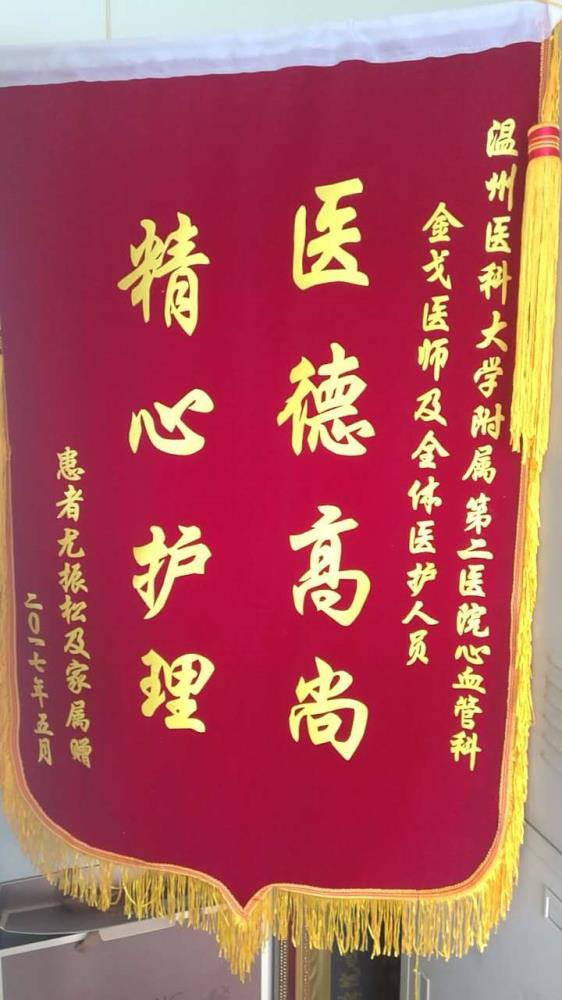 温州医科大学附属第二医院心血管科
金戈医师及全体医护人员
医德高尚
精心护理
患者尤振松及家属赠
二〇一七年五月